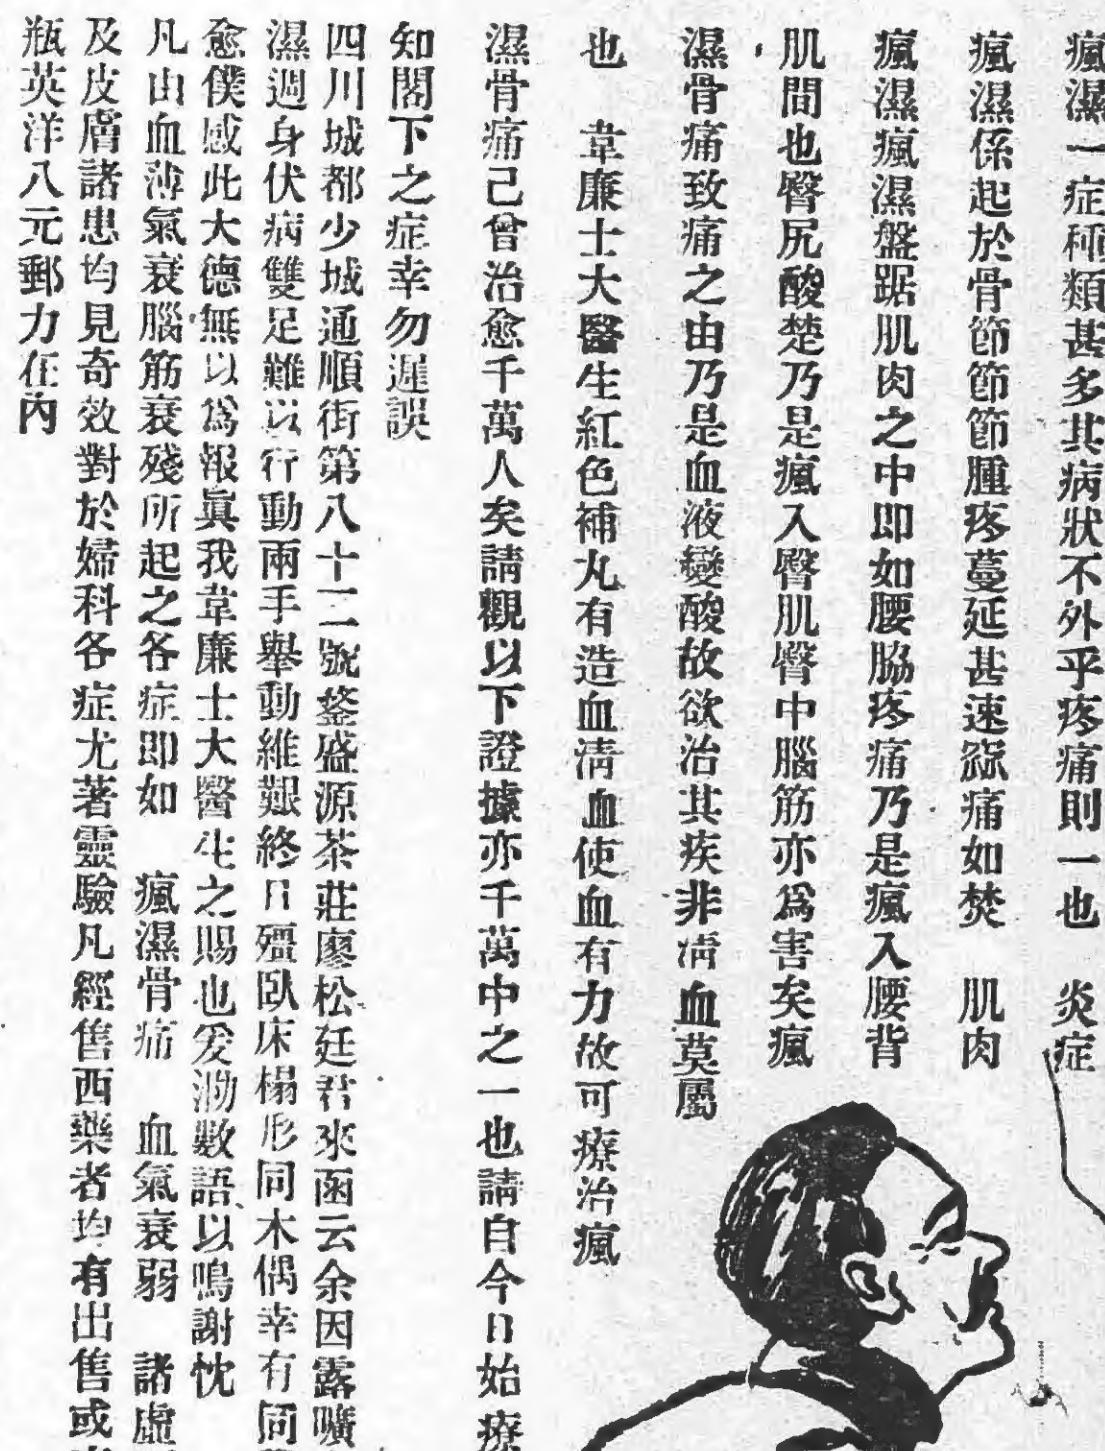 瘋濕一症種類甚多其病狀不外乎疼痛則一也　炎症
瘋濕係起於骨節節節腫疼蔓延甚速 痛如焚　肌肉
瘋濕瘋濕盤踞肌肉之中即如腰脇疼痛乃是瘋入腰背
肌間也臀尻酸楚乃是瘋入臀肌臀中腦筋亦爲害矣瘋
濕骨痛致痛之由乃是血液變酸故欲治其疾非清血莫屬
也　韋廉士大醫生紅色補丸有造血清血使血有力故可療治瘋
濕骨痛己曾治愈千萬人矣請觀以下證據亦千萬中之一也請自今日始療
知閣下之症幸勿遲誤
四川城都少城通順街第八十二號 盛源茶莊廖松廷君來函云余因露曠
濕週身伏病雙足難以行動兩手舉動維艱終日殭臥床榻形同木偶幸有同
愈僕感此大德無以爲報眞我韋廉士大醫生之賜也爰泐數語以鳴謝忱
凡由血薄氣衰腦筋衰殘所起之各症即如　瘋濕骨痛　血氣衰弱　諸虛
及皮膚諸患均見奇效對於婦科各症尤著靈驗凡經售西藥者均有出售或
瓶英洋八元郵力在內